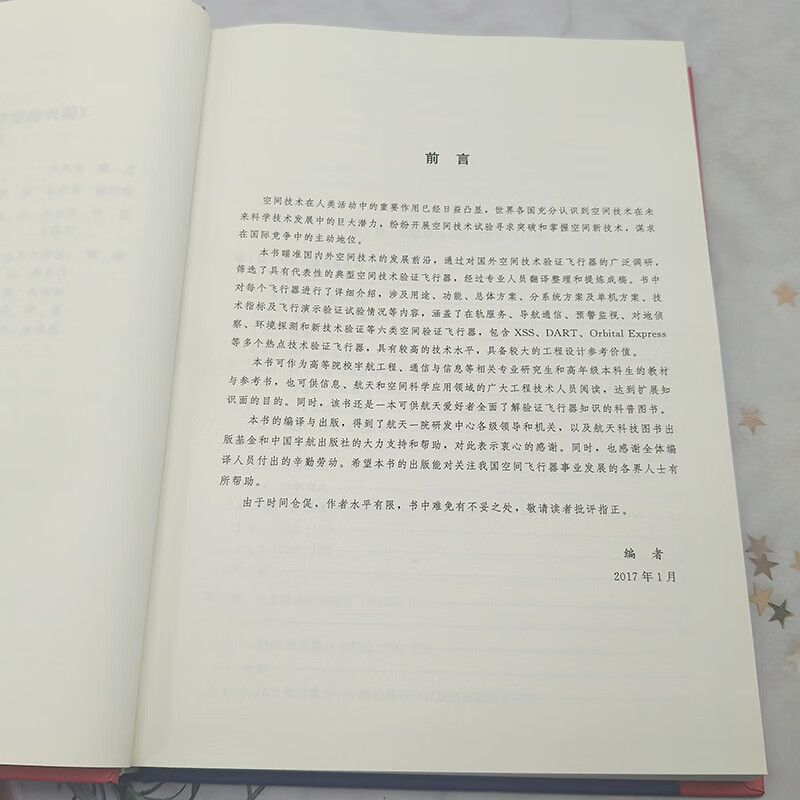 前 言
空间技术在人类活动中的重要作用已经日益凸显，世界各国充分认识到空间技术在未
来科学技术发展中的巨大潜力，纷纷开展空间技术试验寻求突破和掌握空间新技术，谋求
在国际竞争中的主动地位。
本书瞄准国内外空间技术的发展前沿，通过对国外空间技术验证飞行器的广泛调研，
筛选了具有代表性的典型空间技术验证飞行器，经过专业人员翻译整理和提炼成稿。书中
对每个飞行器进行了详细介绍，涉及用途、功能、总体方案、分系统方案及单机方案、技
术指标及飞行演示验证试验情况等内容，涵盖了在轨服务、导航通信、预警监视、对地侦
察、环境探测和新技术验证等六类空间验证飞行器，包含 XSS、DART、Orbital Express
等多个热点技术验证飞行器，具有较高的技术水平，具备较大的工程设计参考价值。
本书可作为高等院校宇航工程、通信与信息等相关专业研究生和高年级本科生的教材
与参考书，也可供信息、航天和空间科学应用领域的广大工程技术人员阅读，达到扩展知
识面的目的。同时，该书还是一本可供航天爱好者全面了解验证飞行器知识的科普图书。
本书的编译与出版，得到了航天一院研发中心各级领导和机关，以及航天科技图书出
版基金和中国宇航出版社的大力支持和帮助，对此表示衷心的感谢。同时，也感谢全体编
译人员付出的辛勤劳动。希望本书的出版能对关注我国空间飞行器事业发展的各界人士有
所帮助。
由于时间仓促，作者水平有限，书中难免有不妥之处，敬请读者批评指正。
编 者
2017 年 1 月